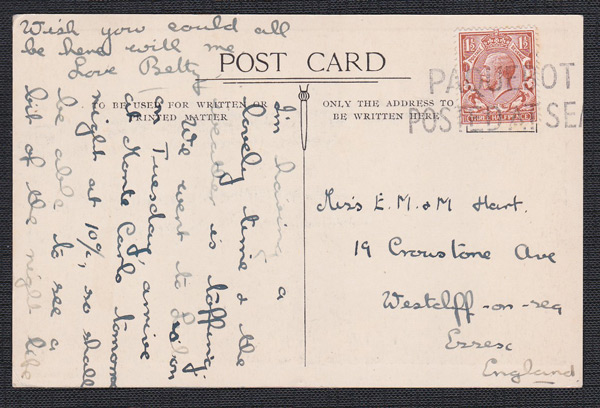 Wish you could all
be here with me
Love Betty
POST CARD
TO BE USED FOR WRITTEN OR
PRINTED MATTER
ONLY THE ADDRESS TO
BE WRITTEN HERE
1½ 1½
THREE HALFPENCE
PAQUEBOT
POSTED AT SEA
I'm having a
lovely time & the
weather is topping.
We went to
on Tuesday, arrive
at Monte Carlo tomorrow
night at 10%, so shall
be able to see a
bit of the night life
Miss E. M. & M Hart.
19 Crowstone Ave
Westcliff-on-sea
Essex
England